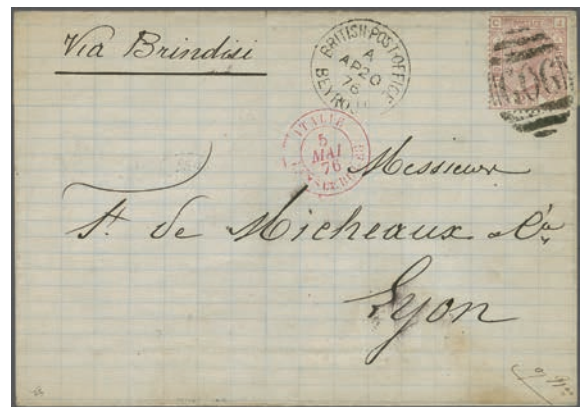 Via Brindisi
BRITISH POST OFFICE
A
AP 20
76
BEYROUT
G06
ITALIE
5
MAI
76
Messieurs
St de Micheaux & Co
Lyon